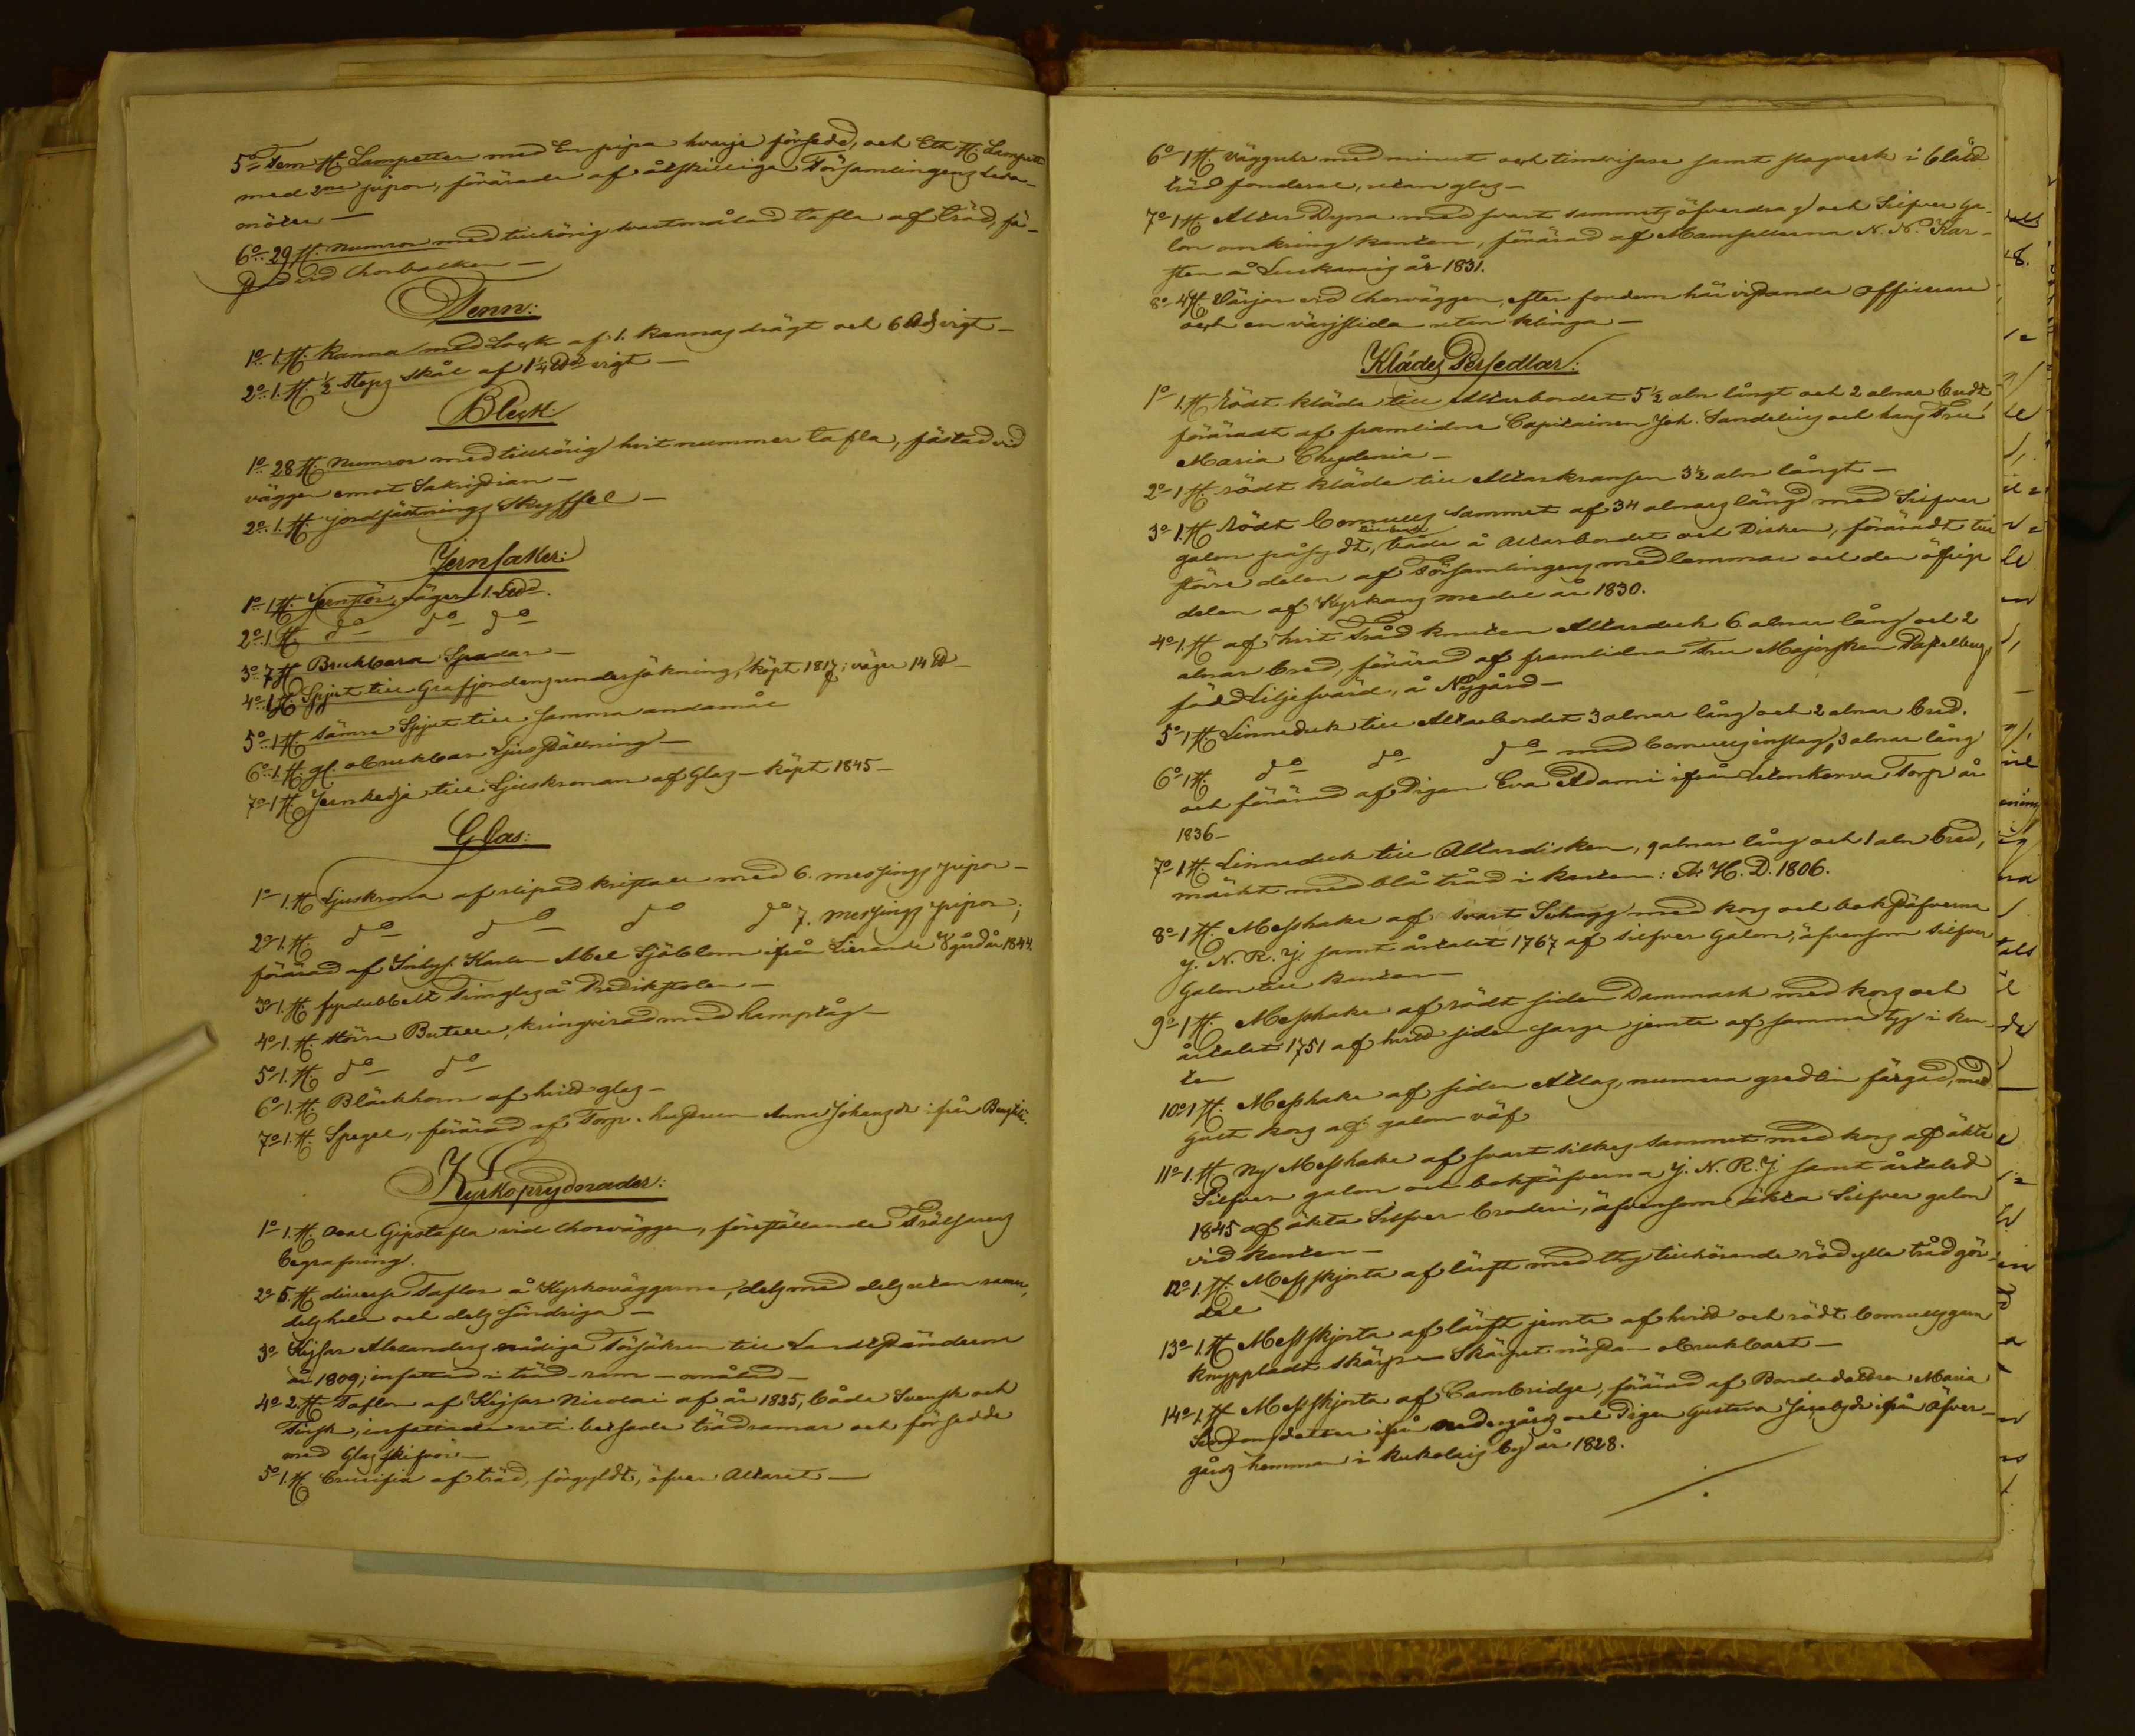 5o Fem st. Lampetter med En pipa hvarje försedd, och Ett st. Lampett
med 2ne pipor, förärade af åtskillige Församlingens Leda-
möter —
6o 29 st. numror med tillhörig svartmålad tafla af träd, fä-
stad vid Chorbalken —
Tenn:
1o 1. st. Kanna med Lock af 1. kannas drägt och 6 ℔s vigt —
2o 1. st. ½ stops skål af 1¼ ℔s vigt —
Bleck:
1o 28 st. Numror med tillhörig hvit nummer tafla, fästad vid
väggen emot Sakristian —
2o 1. st. jordfästnings skyffel —
Jernsaker:
1o 1 st. Jernstör, väger 1. L℔.
2o 1 st. do do do
3o 7 st. Brukbara Spadar —
4o 1 st. Spjut till Grafjordens undersökning, köpt 1817; väger 14 ℔ —
5o 1 st. sämre Spjut till samma andamål
6o 1. st. gl. obrukbar Ljusställning —
7o 1 st. Jernkedja till Ljuskronan af Glas — köpt 1845 —
Glas:
1o 1. st. Ljuskrona af slipad kristall med 6. messings pipor —
2o 1. st. do do do do 7. messings pipor;
förärad af Karlen Abel Sjöblom ifrån gård år 1844.
3o 1. st. fyrdubbelt Timglas å Predikstolen —
4o 1. st. större Butelle, kringvirad med hamptåg —
5o 1. st. do do
6o 1. st. Bläckhorn af hvitt glas —
7o 1. st. Spegel, förärad af Torp. hustrun Anna Johansdr ifrån
Kyrkoprydnader:
1o 1. st. oval Gipstafla vid Chorväggen, föreställande Frälsarens
begrafning.
2o 5. st. diverse Taflor å Kyrkoväggarna, dels med dels utan ramar,
dels hela och dels söndriga —
3o Kejsar Alexanders nådiga Försäkran till Landtständerna
år 1809; infattad i träd-ram — omålad —
4o 2. st. Taflor af Kejsar Nicolai af år 1825, både Svensk och
Finsk, infattade uti betsade trädramar och försedde
med Glas skifvor —
5o 1. st. Crucifix af träd, förgyldt, öfver Altaret —
6o 1 st. Vägguhr med minut och timvisare samt slagverk i blått
träd foderal, utan glas —
7o 1 st. Altar Dyna med svart sammets öfverdrag och Silfver ga-
lon omkring kanten, förärad af Mamsellerna N. N. Kar-
sten å år 1831.
8o 4 st. Värjor vid Chorväggen, efter fordom här vistande Officerare
och en värjslida utan klinga —
Klädes Persedlar:
1o 1. st. Rödt kläde till Altarbordet 5½ aln långt och 2 alnar bredt
förärad af framlidne Capitainen Joh. Sandelius och hans Fru
Maria Chydenia —
2o 1 st. rödt kläde till Altarkransen 3½ aln långt —
3o 1. st. Rödt bomulls sammet af 34 alnars längd med Silfver
galon påsydt, å Altarbordet och Disken, förärad till
större delen af Församlingens medlemmar och den öfrige
delen af Kyrkans medel år 1830.
4o 1. st. af hvit Tråd knuten Altarduk 6 alnar lång och 2
alnar bred, förärad af framlidna Fru Majorskan
född Liljesvärd, å Nygård —
5o 1 st. Linneduk till Altarbordet 3 alnar lång och 2 alnar bred.
6o 1 st. do do do med bomulls inslag, 3 alnar lång
och förärad af Pigan Eva Adami ifrån Torp år
1836 —
7o 1 st. Linneduk till Altardisken, 9 alnar lång och 1 aln bred,
märkt med blå tråd i kanten: A. H. D. 1806.
8o 1 st. Messhake af svart Schagg med kors och bokstäfverne
J. N. R. J. samt årtalet 1767 af silfver Galon, äfvensom silfver
Galon till kanten —
9o 1 st. Messhake af rödt siden Dammask med kors och
årtalet 1751 af hvitt siden sarge jemte af samma tyg i kan-
ten
10o 1 st. Messhake af siden Atlas, numera gredlin färgad, med
gult kors af galon väf
11o 1. st. Ny Messhake af svart silkes sammet med kors af äkta
Silfver galon och bokstäfverna J. N. R. J. samt årtalet
1845 af äkta Silfver broderi, äfvensom äkta Silfver galon
vid kanten —
12o 1. st. Messskjorta af lärft med thy tillhörande röd ylle tråd gör-
del
13o 1. st. Messskjorta af lärft jemte af hvitt och rödt bomullsgarn
knyppladt skärp — Skärpet nästan obrukbart —
14o 1. st. Messskjorta af Cambridge, förärad af Bondedottren Maria
Simonsdotter ifrån nedergårds och Pigan Gustava Jacobsdr ifrån Öfver-
gårds hemman i by år 1828.